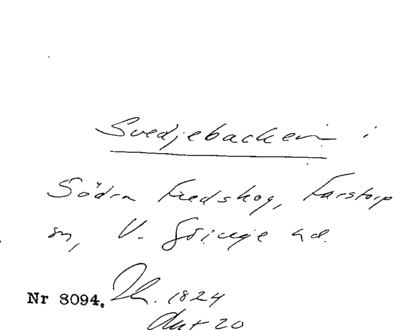 Svedjebacken i
Södra Fredskog, Farstorp
sn, V. Göinge hd.
Nr 8094. 1824
20